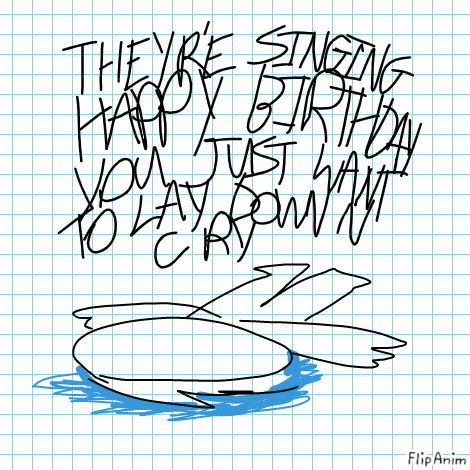 THEY'RE SINGING
HAPPY BIRTHDAY
YOU JUST WANT
TO LAY DOWN N
CRY
FlipAnim